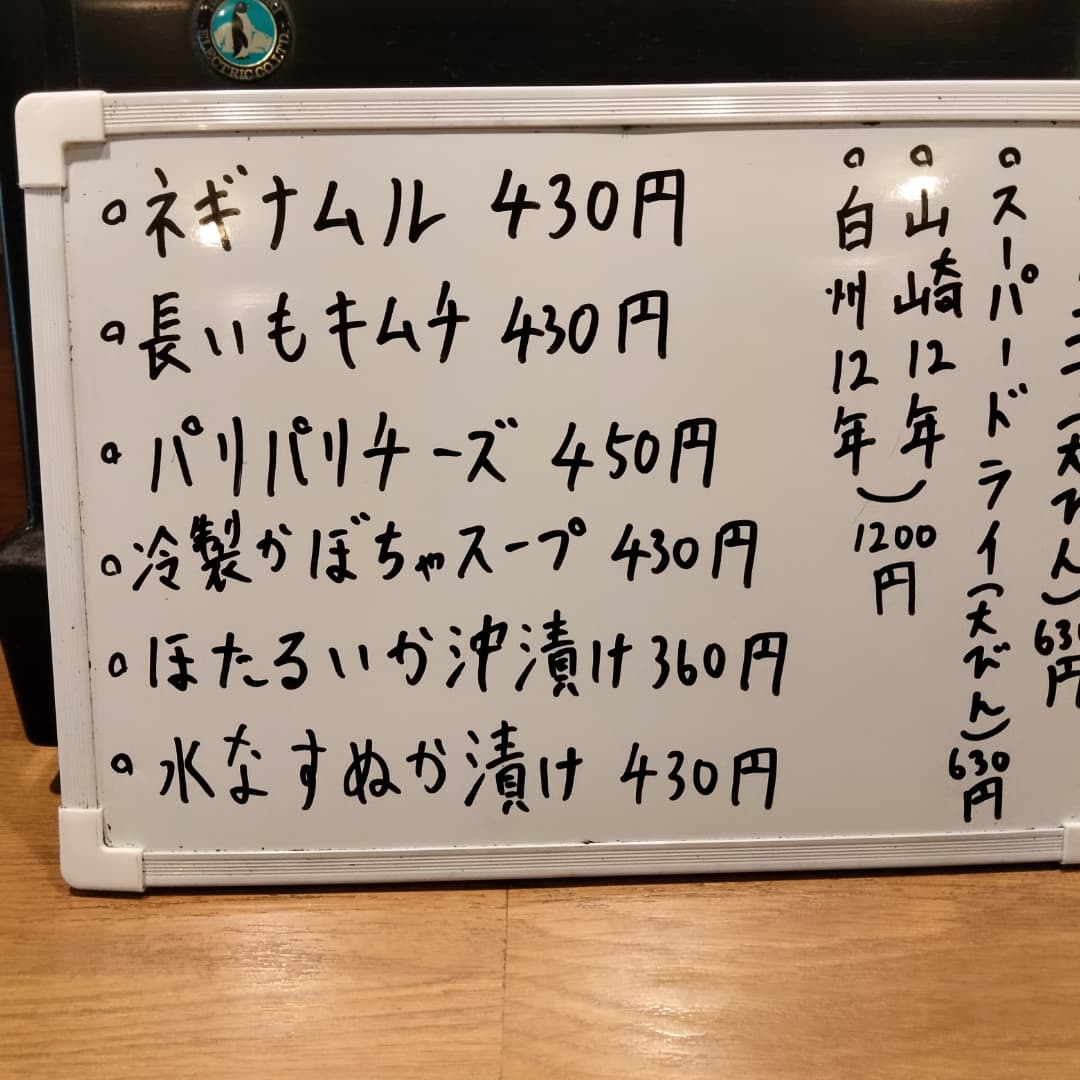 ELECTRIC CO.LTD.
ネギナムル 430円
長いもキムチ 430円
パリパリチーズ 450円
冷製かぼちゃスープ 430円
ほたるいか沖漬け 360円
水なすぬか漬け 430円
(大びん) 630円
スーパードライ(大びん) 630円
山崎12年
白州12年
1200円